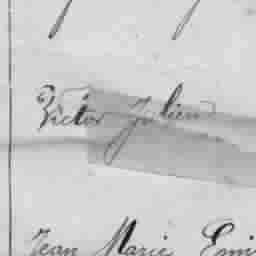 Victor Julien
Jean Marie Emi